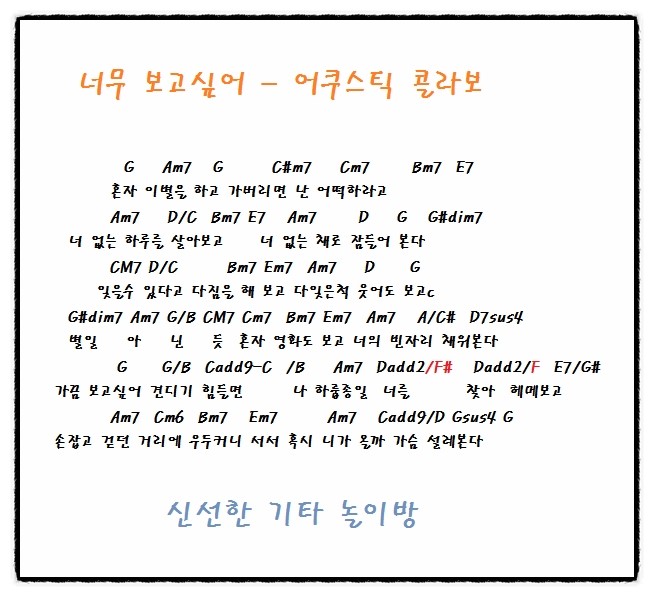 너무 보고싶어 - 어쿠스틱 콜라보
G Am7 G C#m7 Cm7 Bm7 E7
혼자 이별을 하고 가버리면 난 어떡하라고
Am7 D/C Bm7 E7 Am7 D G G#dim7
너 없는 하루를 살아보고 너 없는 채로 잠들어 본다
CM7 D/C Bm7 Em7 Am7 D G
잊을수 있다고 다짐을 해 보고 다잊은척 웃어도 보고c
G#dim7 Am7 G/B CM7 Cm7 Bm7 Em7 Am7 A/C# D7sus4
별일 아 닌 듯 혼자 영화도 보고 너의 빈자리 채워본다
G G/B Cadd9-C /B Am7 Dadd2/F# Dadd2/F E7/G#
가끔 보고싶어 견디기 힘들면 나 하룹종일 너를 찾아 헤매보고
Am7 Cm6 Bm7 Em7 Am7 Cadd9/D Gsus4 G
손잡고 걷던 거리에 우두커니 서서 혹시 니가 올까 가슴 설레본다
신선한 기타 놀이방